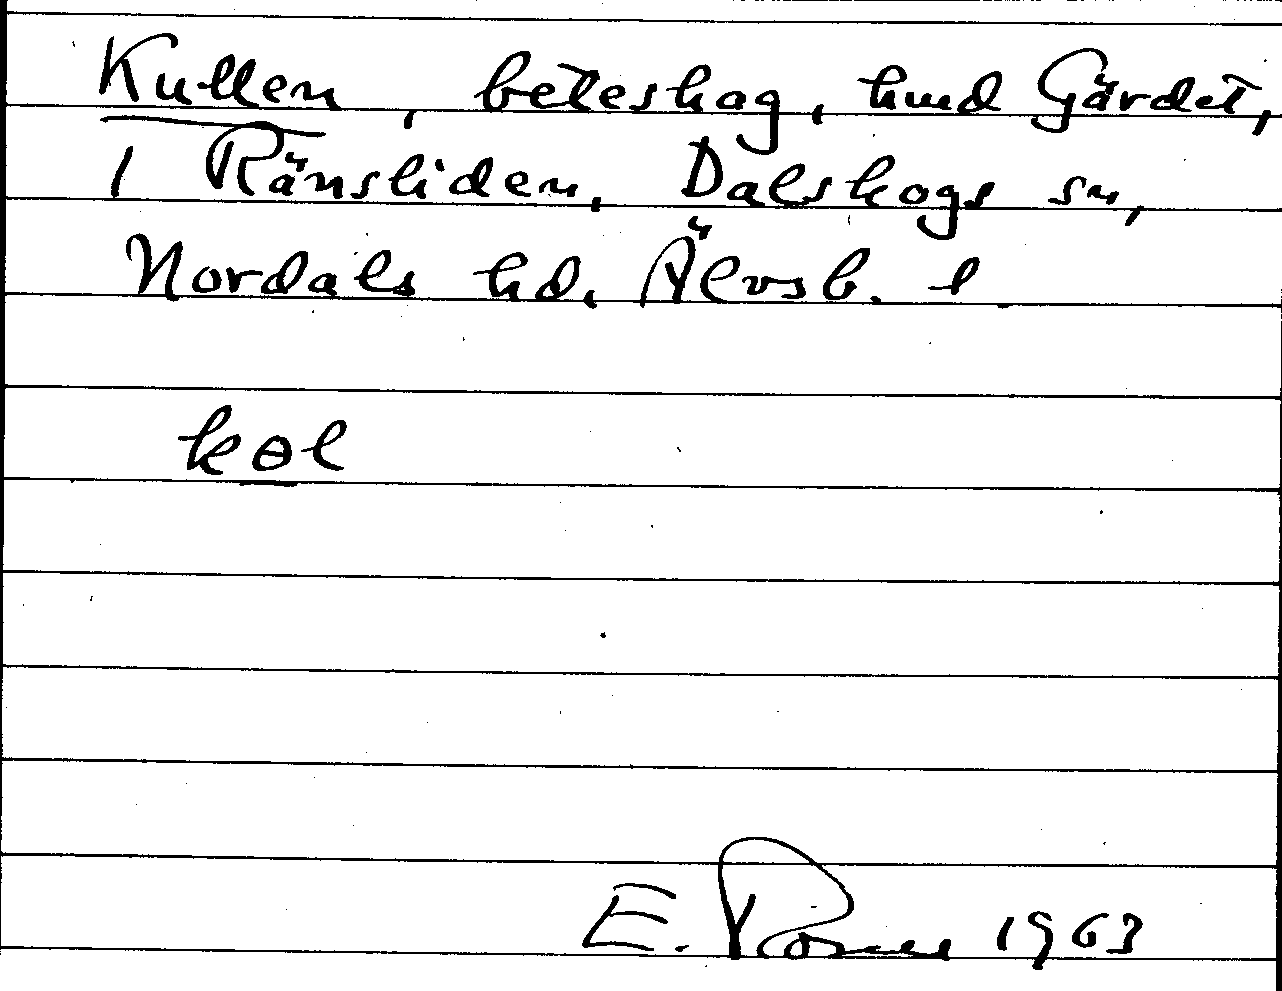 Kullen, beteshag, hmd Gärdet,
1 Ränsliden, Dalskogs sn,
Nordals hd. Älvsb. l
kɵl
E. 1963